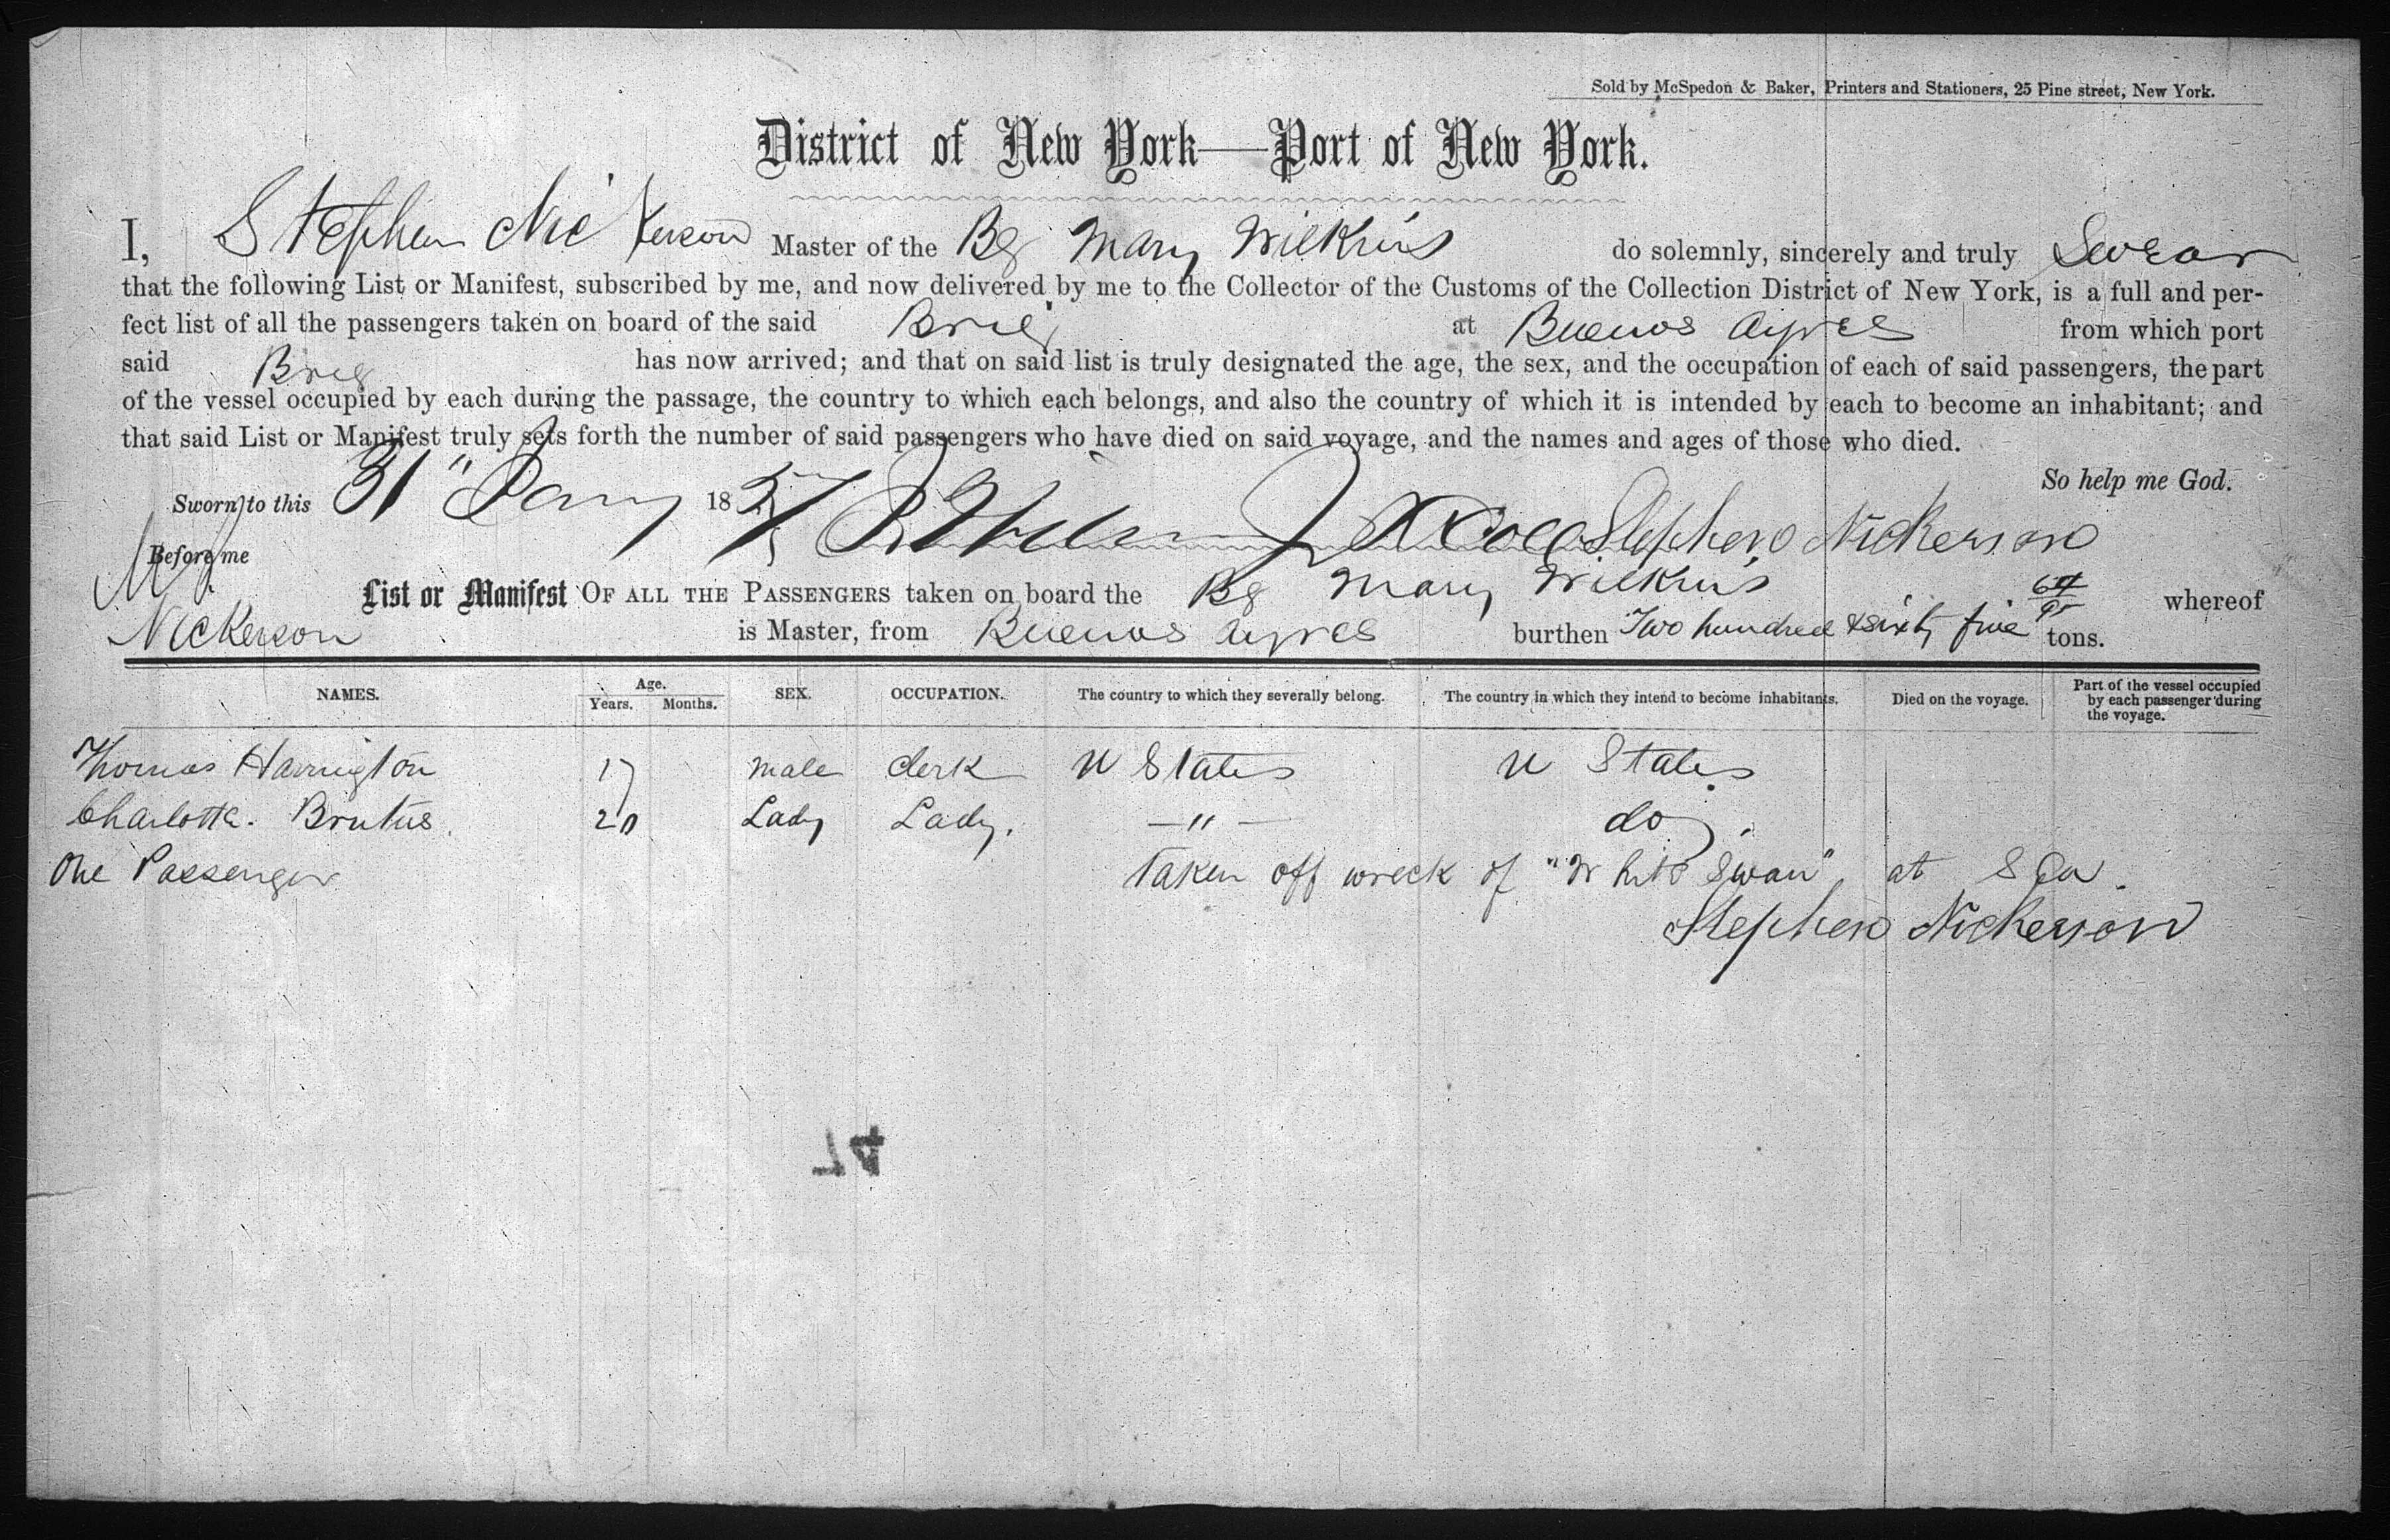 Sold by McSpedon & Baker, Printers and Stationers, 25 Pine street, New York.
District of New York—Port of New York.
I, Stephen Nickerson Master of the Bg Mary Wilkins do solemnly, sincerely and truly Swear
that the following List or Manifest, subscribed by me, and now delivered by me to the Collector of the Customs of the Collection District of New York, is a full and per-
fect list of all the passengers taken on board of the said Brig at Buenos Ayres from which port
said Brig has now arrived; and that on said list is truly designated the age, the sex, and the occupation of each of said passengers, the part
of the vessel occupied by each during the passage, the country to which each belongs, and also the country of which it is intended by each to become an inhabitant; and
that said List or Manifest truly sets forth the number of said passengers who have died on said voyage, and the names and ages of those who died.
So help me God.
Sworn to this 31" Jany 1857 Stephen Nickerson
Before me
List or Manifest OF ALL THE PASSENGERS taken on board the Bg Mary Wilkins whereof
Nickerson is Master, from Buenos Ayres burthen Two hundred & sixty five 64/95 tons.
NAMES. Age. Years. Months. SEX. OCCUPATION. The country to which they severally belong. The country in which they intend to become inhabitants. Died on the voyage. Part of the vessel occupied by each passenger during the voyage.
Thomas Harrington 17 male clerk U States U States
Charlotte. Brutus. 20 Lady Lady. —"— do.
One Passenger Taken off wreck of "White Swan" at Sea.
Stephen Nickerson